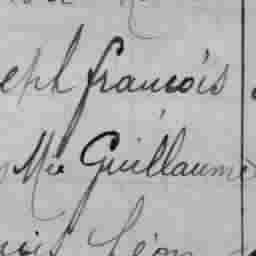 eph françois
Mie Guillaume
ouis Léon